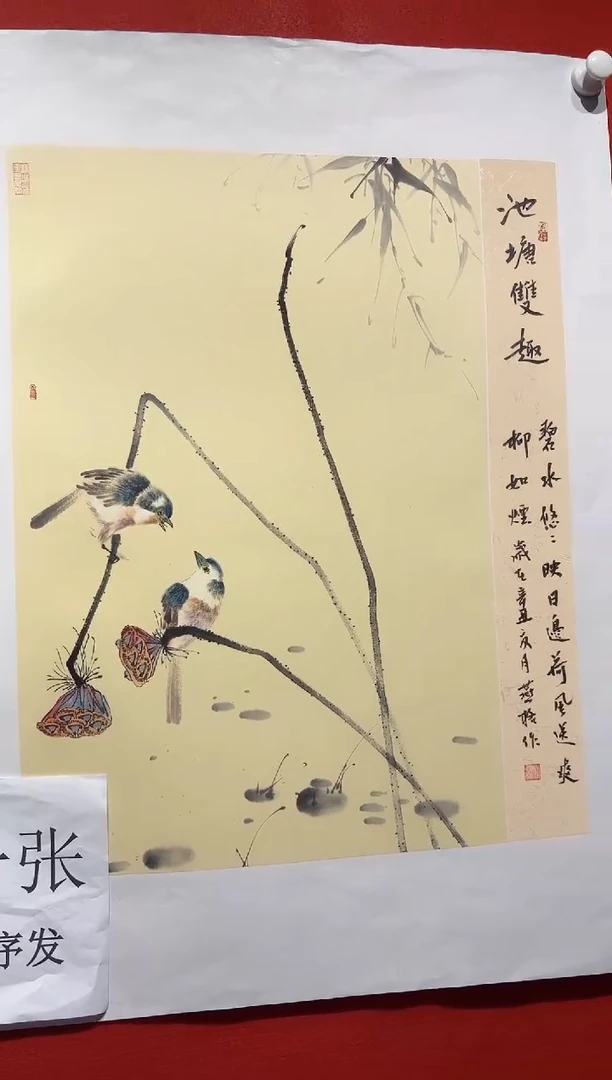 池塘雙趣
碧水悠:映日邊荷風送爽
柳如煙歲在辛丑夏月燕
作
张
序发